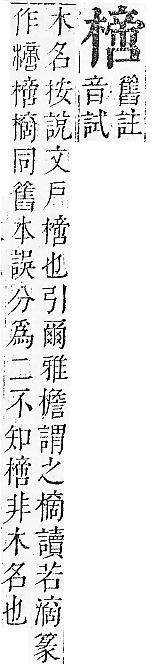 舊註
音試
木名按說文戶也引爾雅檐謂之樀讀若滴篆
作樀同舊本誤分爲二不知非木名也